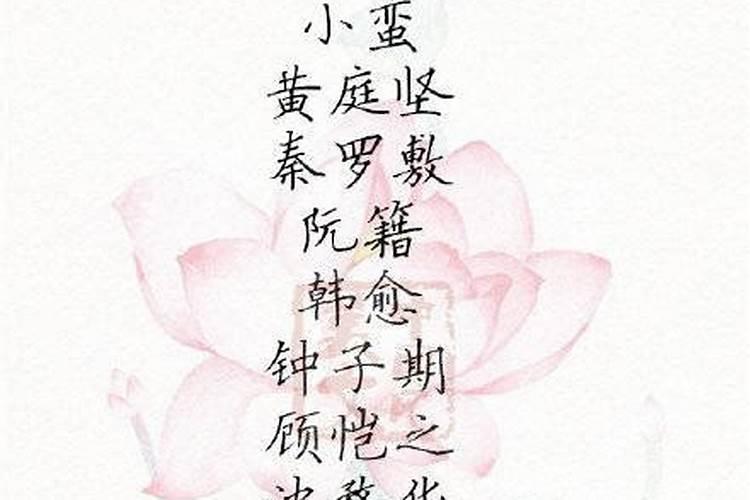 小蛮
黄庭坚
秦罗敷
阮籍
韩愈
钟子期
顾恺之